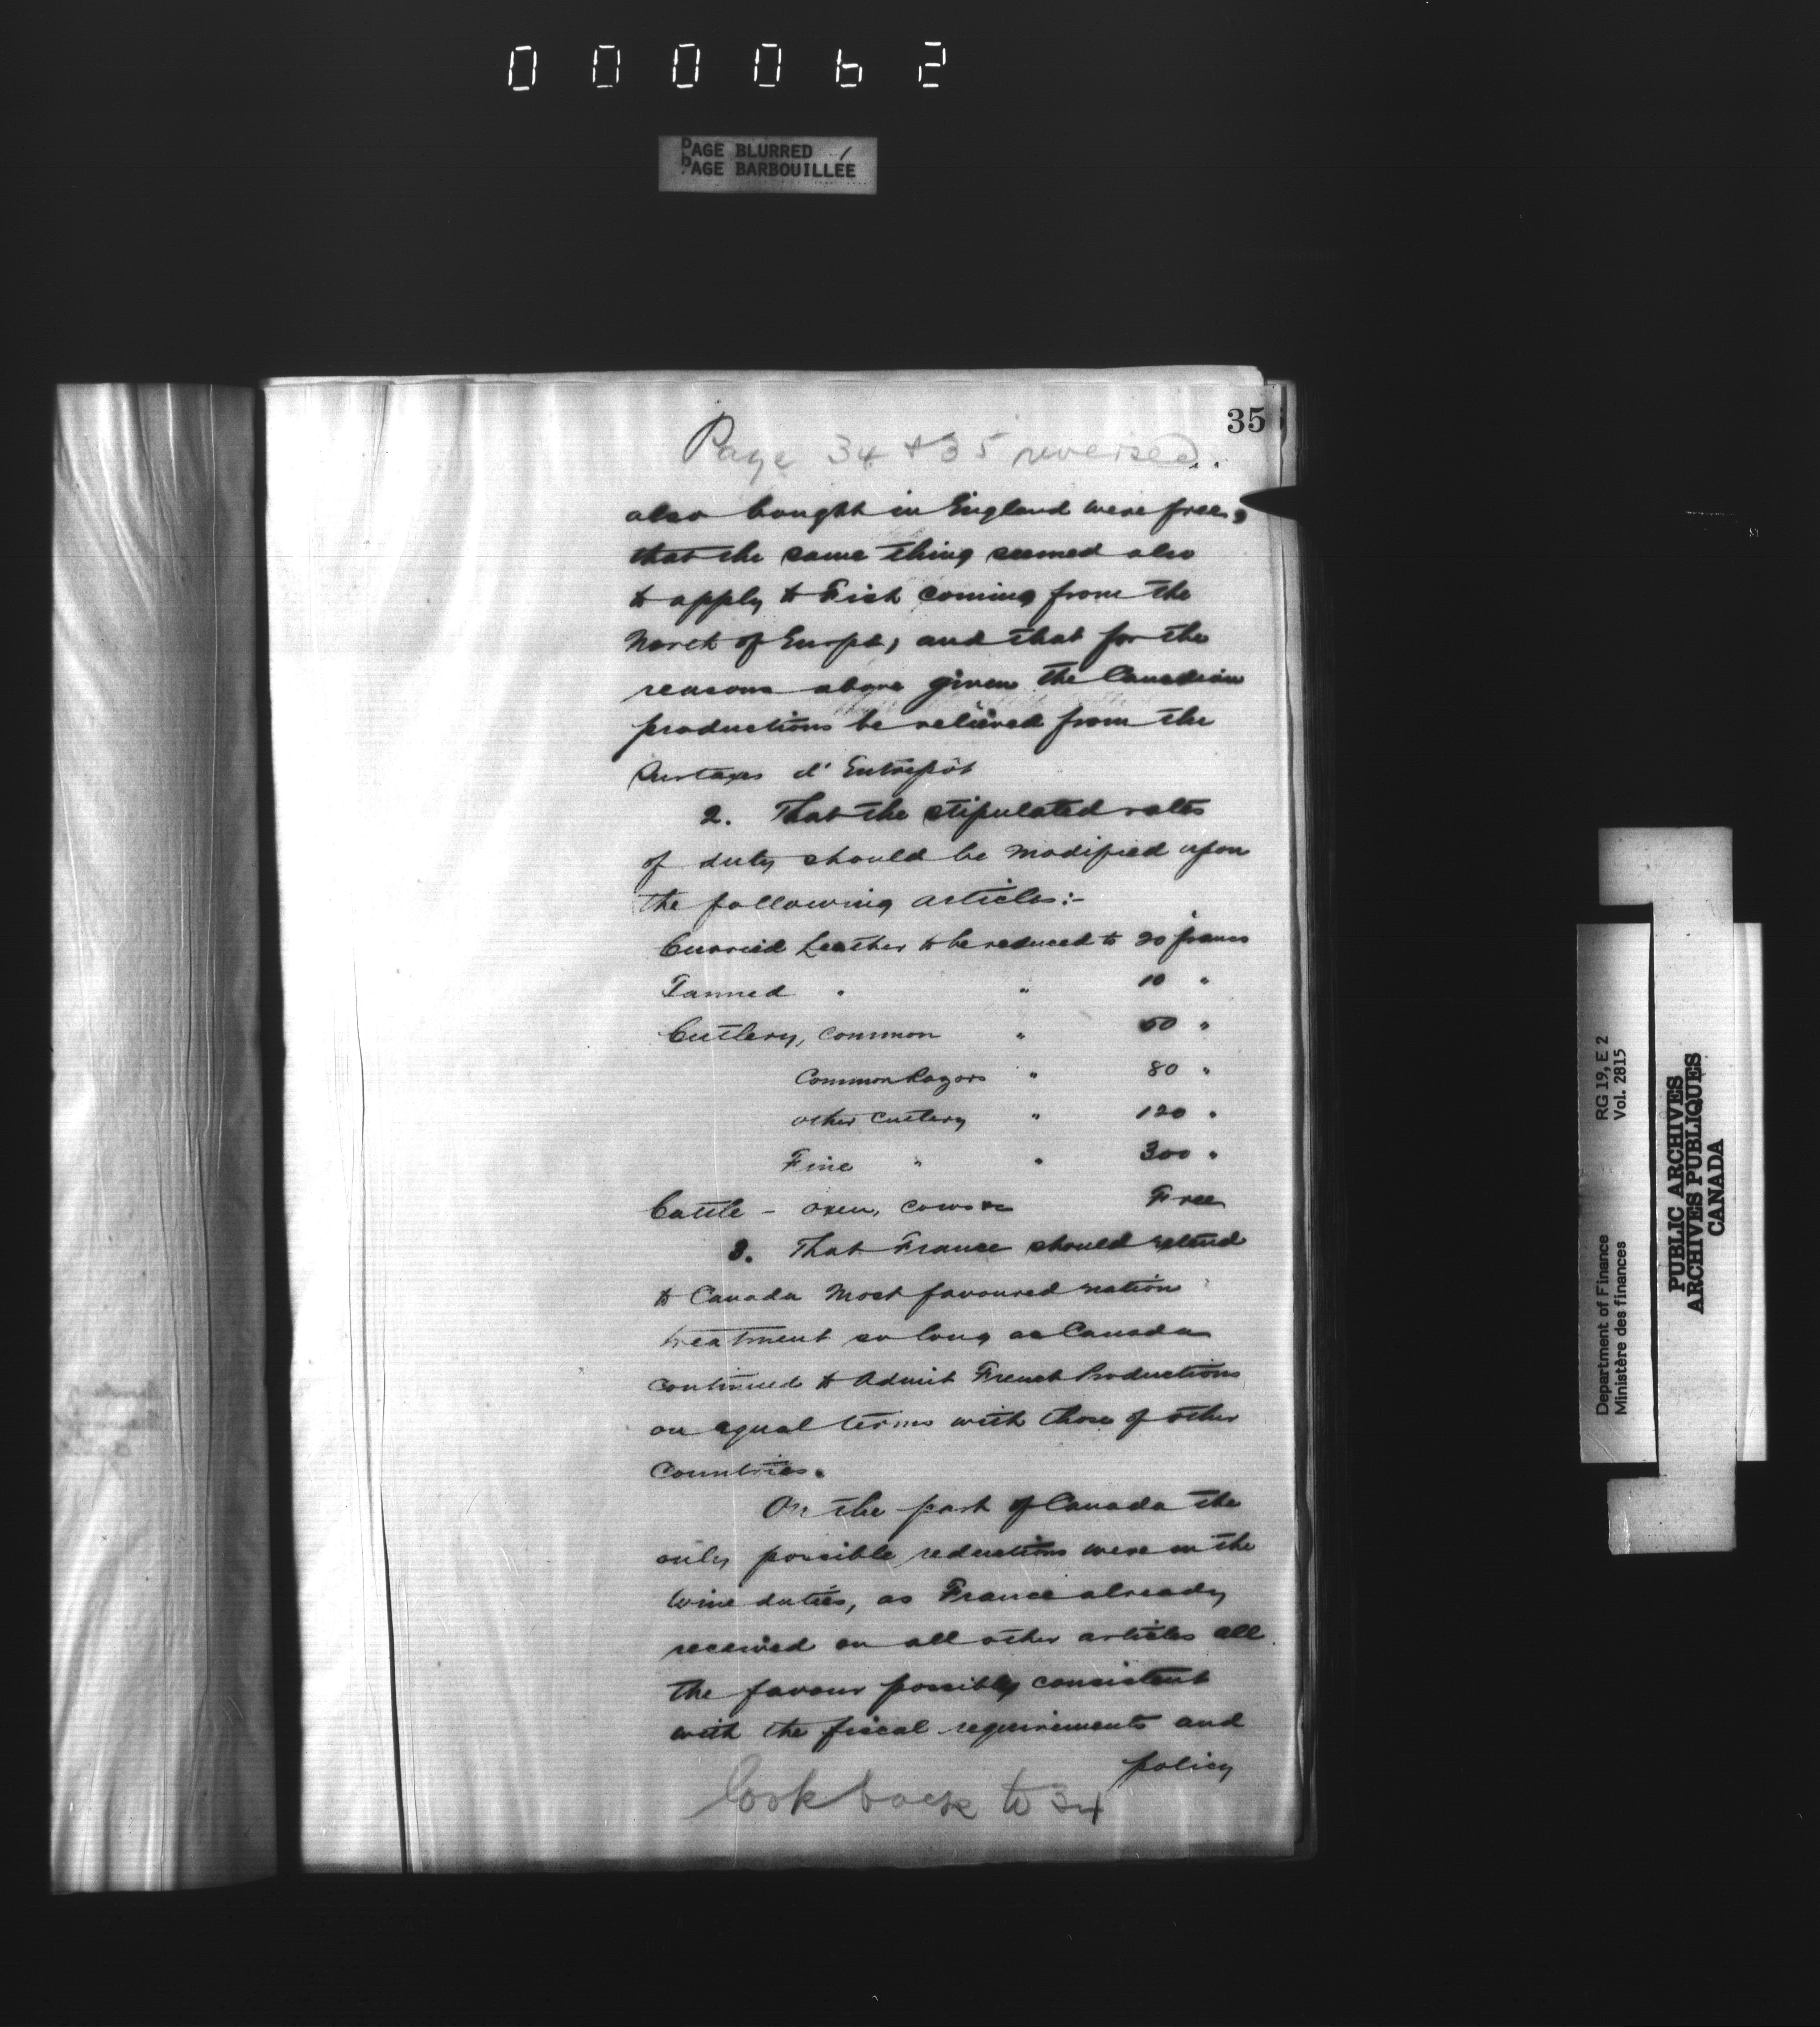 000062
PAGE BLURRED
PAGE BARBOUILLÉE
35
Page 34 & 35 reversed.
also bought in England were free,
that the same thing seemed also
to apply to Fish coming from the
North of Europe, and that for the
reasons above given the Canadian
productions be relieved from the
Surtaxes d'Entrepôt
2. That the stipulated rates
of duty should be modified upon
the following articles:-
Curried Leather to be reduced to 20 francs
Tanned " " 10 "
Cutlery, common " 50 "
Common Razors " 80 "
other Cutlery " 120 "
Fine " " 300 "
Cattle - oxen, cows &c Free
3. That France should extend
to Canada Most favoured nation
treatment so long as Canada
continued to Admit French Productions
on equal terms with those of other
Countries.
On the part of Canada the
only possible reductions were on the
Wine duties, as France already
received on all other articles all
the favour possibly consistent
with the fiscal requirements and
policy
look back to 34
Department of Finance RG 19, E 2
Ministère des finances Vol. 2815
PUBLIC ARCHIVES
ARCHIVES PUBLIQUES
CANADA